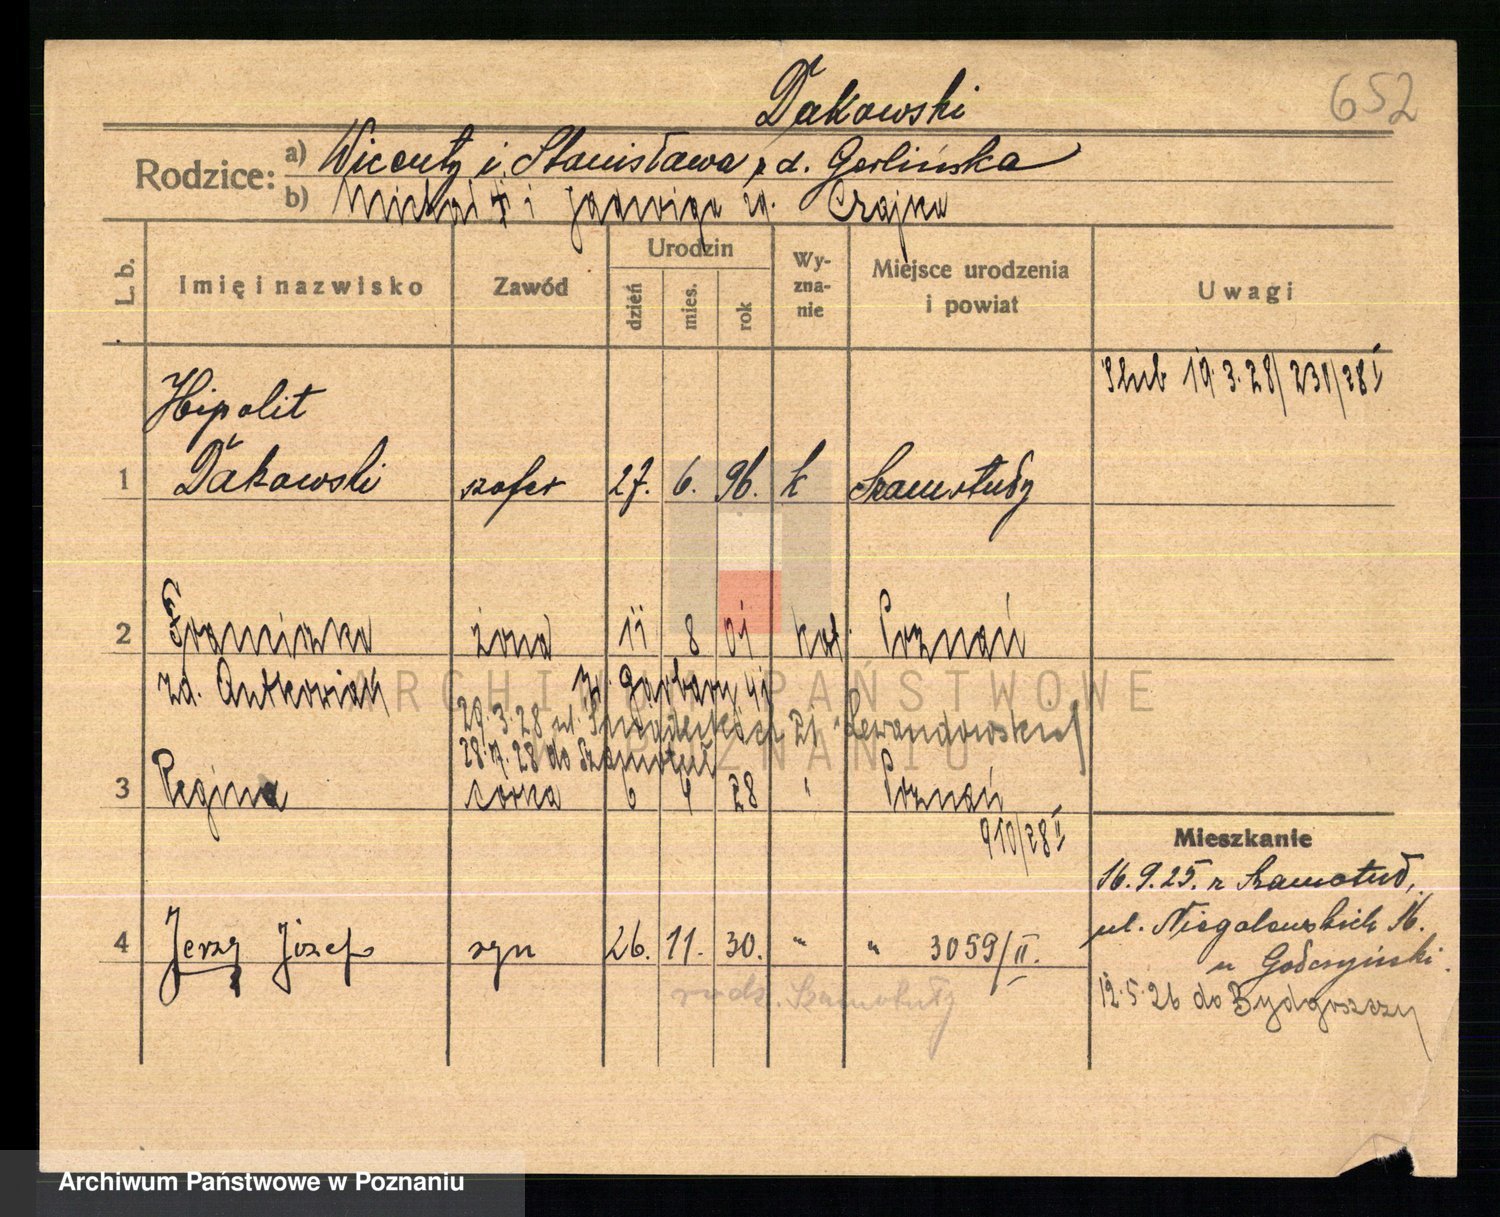 652
Dakowski
Rodzice: a) Wicenty i Stanisława z d. Gerlińska
b) Michał † i Jadwiga zd. Czajka
L. b. Imię i nazwisko Zawód Urodzin dzień mies. rok Wyznanie Miejsce urodzenia i powiat Uwagi
Ślub 19.3.28/231/28 I
Hipolit
1 Dakowski szofer 27. 6. 96. k Szamotuły
2 Franciszka żona 11 8 01 kat. Poznań
zd. Antkowiak Garbary 41
29.3.28 ul. 21 Lewandowskiej
28.7.28 do Szamotuł
3 Regina córka 6 4 28 " Poznań
910/28 II
Mieszkanie
16.9.25. z Szamotuł,
ul. Niegolewskich 16.
4 Jerzy Józef syn 26. 11. 30. " " 3059/II.
u
rodz. Szamotuły
12.5.26 do Bydgoszczy
ARCHIWUM PAŃSTWOWE
W POZNANIU
Archiwum Państwowe w Poznaniu